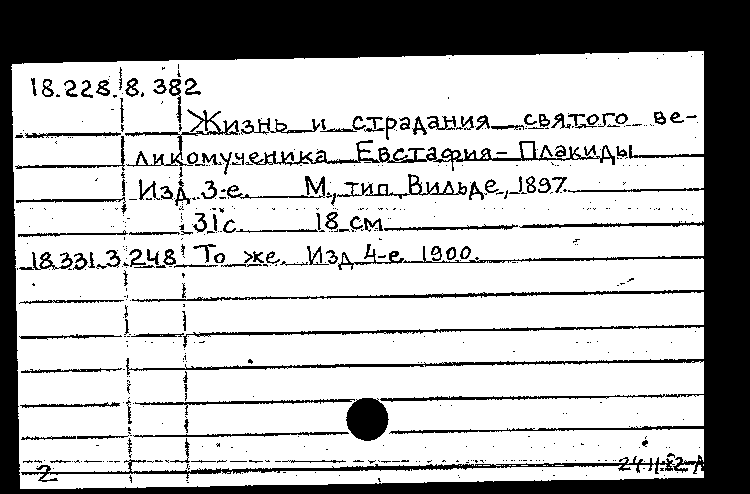 18.228.8.382
Жизнь и страдания святого ве-
ликомученика Евстафия-Плакиды
Изд 3-е. М., тип. Вильде, 1897.
31 с. 18 см
18.331.3.248 То же. Изд 4-е 1900.
2